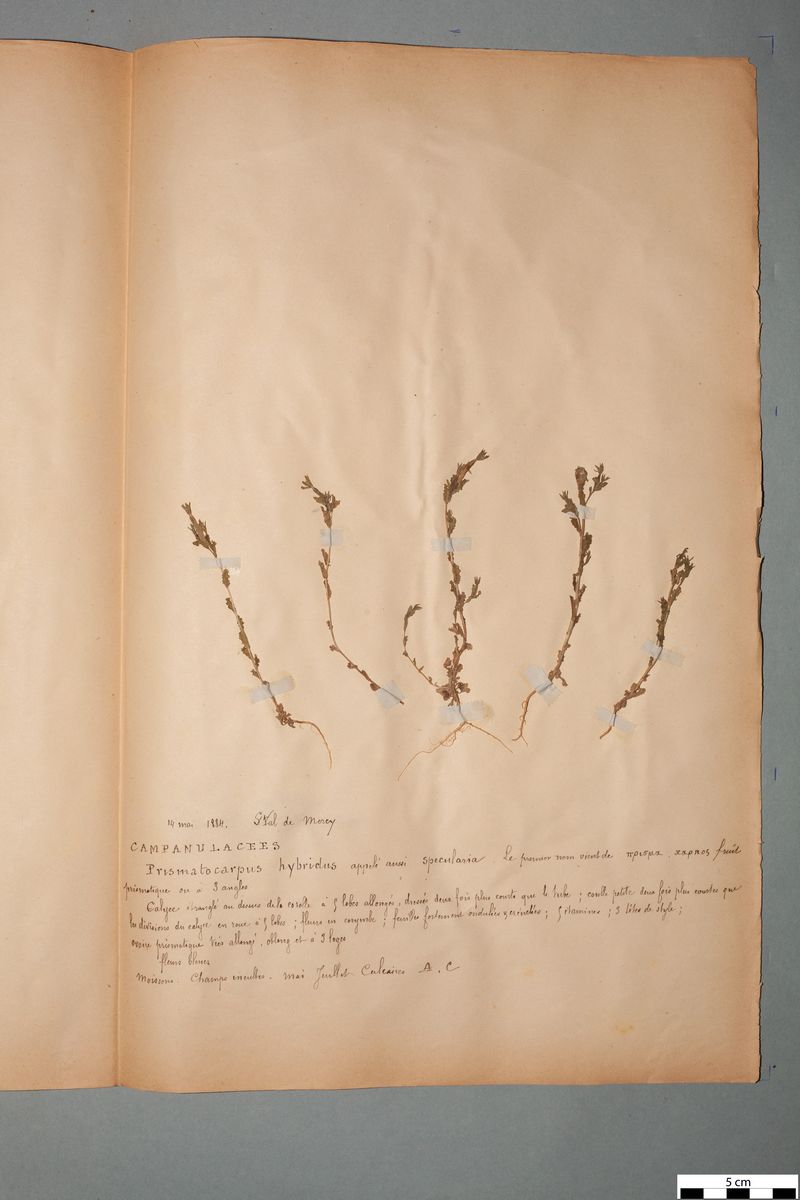 14 mai 1884. St Val de Morcy
CAMPANULACEES
Prismatocarpus hybridus appelé aussi specularia. Le premier nom vient de πρισμα, καρπος fruit
prismatique ou à 3 angles
Calyce étranglé au dessus de la corolle à 5 lobes allongés, dressés deux fois plus courts que le tube ; corolle petite deux fois plus courtes que
les divisions du calyce en roue à 5 lobes ; fleurs en corymbe ; feuilles fortement ondulées crénelées ; 5 étamines ; 3 lobes de style ;
ovaire prismatique très allongé, oblong et à 3 loges
fleurs bleues
Moissons. Champs incultes. mai Juillet Calcaires A. C
5 cm